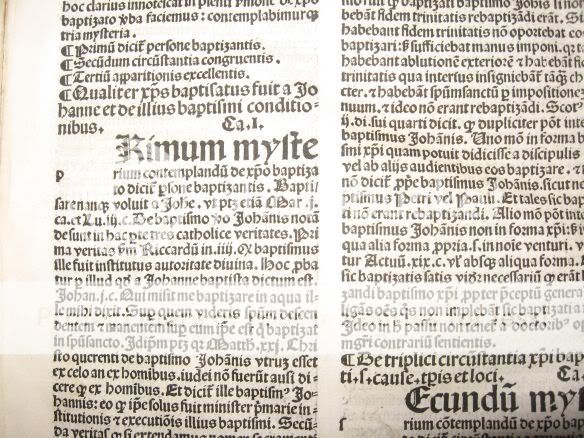 hoc clarius innotescat in pleni
baptizato verba faciemus: contemplabimurqꝫ
tria mysteria.
¶ Primũ dicit᷑ persone baptizantis.
¶ Secũdum circũstantia congruentis.
¶ Tertiũ apparitionis excellentis.
¶ Qualiter xp̃s baptisatus fuit a Jo
hanne et de illius baptismi conditio⸗
nibus. Ca. I.
Rimum myste
p rium contemplandũ de xp̃o baptiza
to dicit᷑ ꝑsone baptizantis. Bapti
sarenanqꝫ voluit a Johẽ. vt ptꝫ etiã Mar .j.
ca. et Lu. iij. c. De baptismo ꝟo Johãnis notã
de sunt in hac ꝑte tres catholice veritates. Pri
ma veritas ẽm Riccardũ in .iiij. Q baptismus
ille fuit institutus autoritate diuina. Hoc ꝓba
tur ꝑ illud qđ a Johanne baptista dictum est.
Johan. j. c. Qui misit me baptizare in aqua il⸗
le mihi dixit. Sup quem videris spũm descen
dentem ⁊ manentem sup eum ip̃e est q̃ baptizat
in spũsancto. Jdip̃m ptꝫ qꝛ Matth. xxj. Chri
sto querenti de baptismo Johãnis vtrũꝫ esset
ex celo an ex hominibus. iudei nõ fuerũt ausi di
cere qꝫ ex hominibus. Et dicit᷑ ille baptism⁹ Jo⸗
hannis: eo qꝫ ip̃e solus fuit minister p̃marie in⸗
stitutionis ⁊ executiõis illius baptismi. Secũ⸗
da veritas
hoc
bebãt fidem trinitatis rebaptizãdi erãt. S
habebant fidem trinitatis nõ oportebat co
baptizari: ß sufficiebat manus imponi. qꝛ t
habebant ablutionẽ exteriorẽ ⁊ habebãt fid
trinitatis qua interius insigniebãt᷑
cter. ⁊ habebãt spũmsanctũ ꝑ impositionez
nuum. ⁊ ideo nõ erant rebaptizãdi. Scot
ij. di. sui quarti dicit. qꝫ dupliciter põt inte
baptismus Johãnis. Uno mõ in forma b
smi xp̃i quam potuit didicisse a discipulis
vel ab alijs audientibus eos baptizare.
nõ dicit᷑ ꝓp̃e baptismus Johãnis. sicut n
ptismus Petri vel Pauli. Et tales sic bap
ti nõ erant rebaptizandi. Alio mõ põt ini
baptismus Johãnis non in forma xp̃i: ß i
qua alia forma ꝓpria. s. in noĩe venturi. v
tur Actuũ .xix. c. vl̃ absqꝫ aliqua forma.
sic baptizatis satis videt᷑ necessariũ qꝫ erãt
zandi baptismo xp̃i ꝓpter p̃ceptũ general
ligatoẽs oẽs qui non implebãt sic bapti
Jdeo in ß passu non tenet᷑ a doctorib⁹
mgr̃i contrariũ sentientis.
¶ De triplici circũstantia xp̃i bap
ti. s. cause. tꝑis et loci. Ca
Ecundũ myst
rium cõtemplandũ de xp̃o